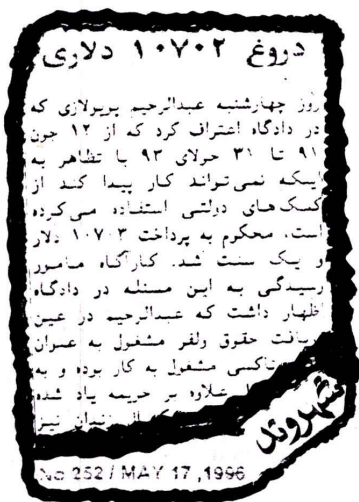 دروغ ۱۰۷۰۲ دلاری
روز چهارشنبه عبدالرحیم پریولازی که
در دادگاه اعتراف کرد که از ۱۲ جون
۹۱ تا ۳۱ جولای ۹۳ با تظاهر به
اینکه نمی‌تواند کار پیدا کند از
کمک‌های دولتی استفاده می‌کرده
است، محکوم به پرداخت ۱۰۷۰۳ دلار
و یک سنت شد. کارآگاه مامور
رسیدگی به این مسئله در دادگاه
اظهار داشت که عبدالرحیم در عین
دریافت حقوق ولفر مشغول به عمران
تاکسی مشغول به کار بوده و به
علاوه بر جریمه یاد شده
زندان نیز
شهروند
No 252 / MAY 17, 1996